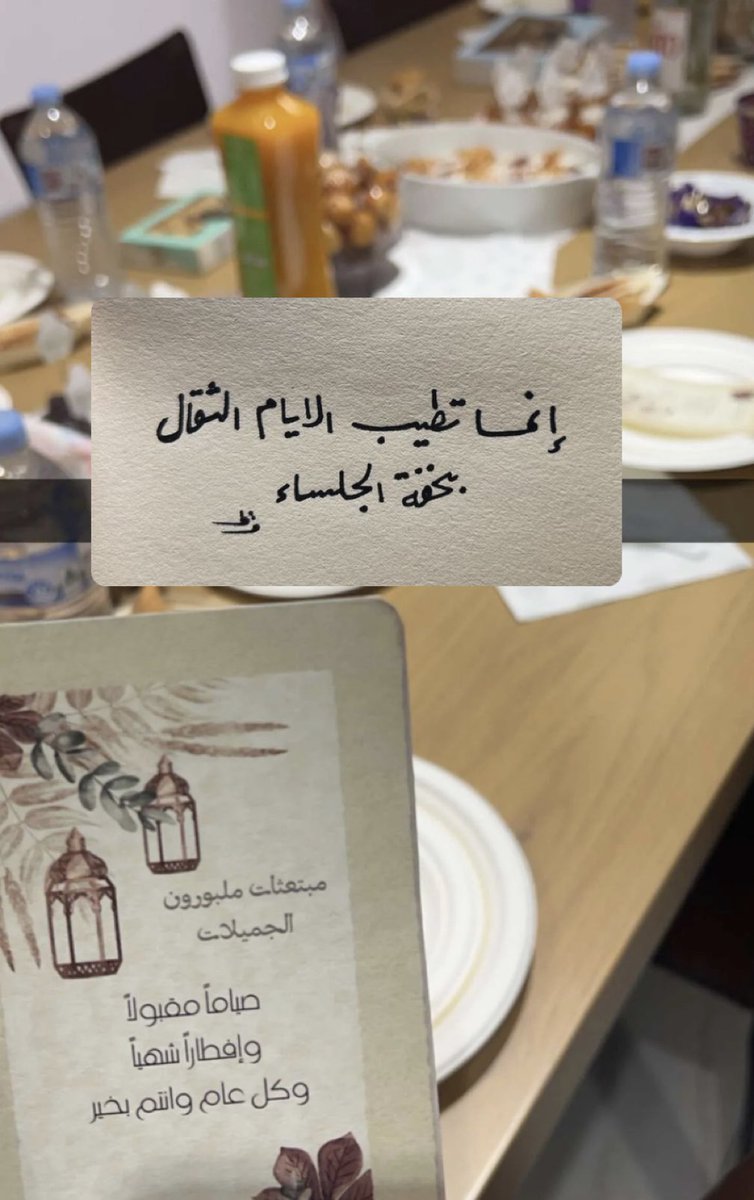 إنما تطيب الايام الثقال
بخفة الجلساء
مبتعثات ملبورون
الجميلات
صياماً مقبولاً
وإفطاراً شهياً
وكل عام وانتم بخير